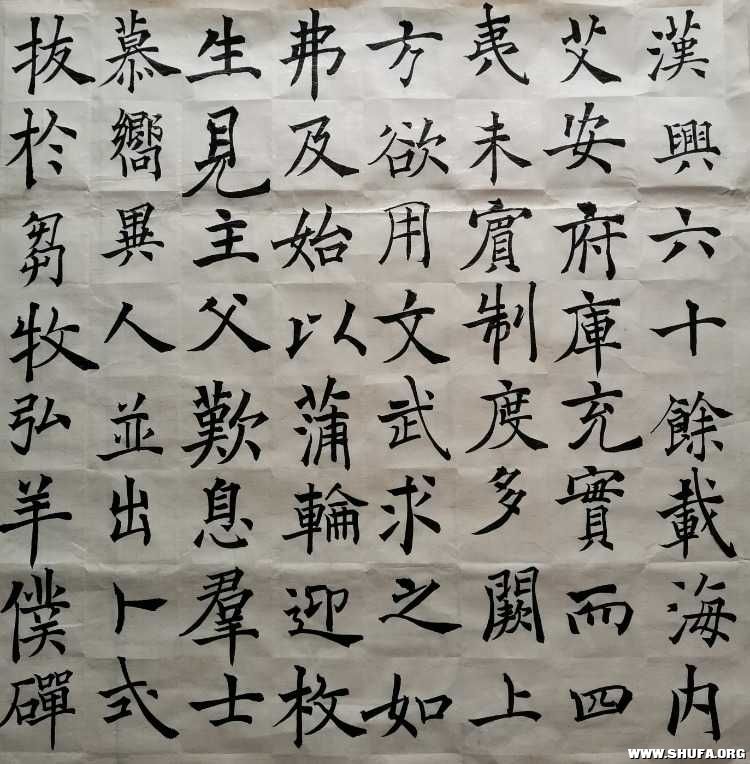 漢興六十餘載海内
艾安府庫充實而四
夷未賔制度多闕上
方欲用文武求之如
弗及始以蒲輪迎枚
生見主父歎息羣士
慕嚮異人並出卜式
拔於芻牧弘羊僕磾
WWW.SHUFA.ORG